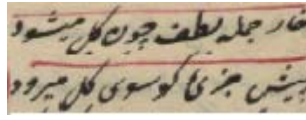 خار جمله لطف چون گل میشود
پیش جزئ کو سوی کل میرود